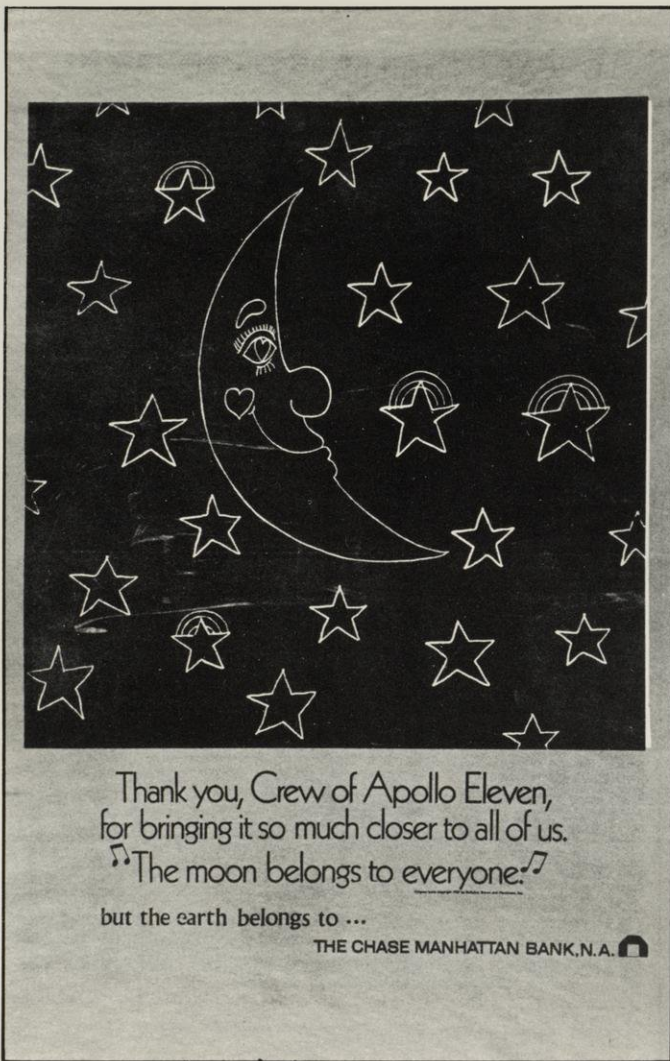 Thank you, Crew of Apollo Eleven,
for bringing it so much closer to all of us.
♫The moon belongs to everyone.♫
but the earth belongs to ...
THE CHASE MANHATTAN BANK, N.A.